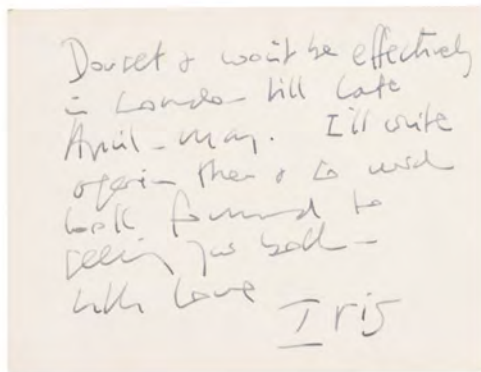 Dorset & won't be effectively
in London till late
April - May. I'll write
again then & do much
look forward to
seeing you both -
with love
Iris